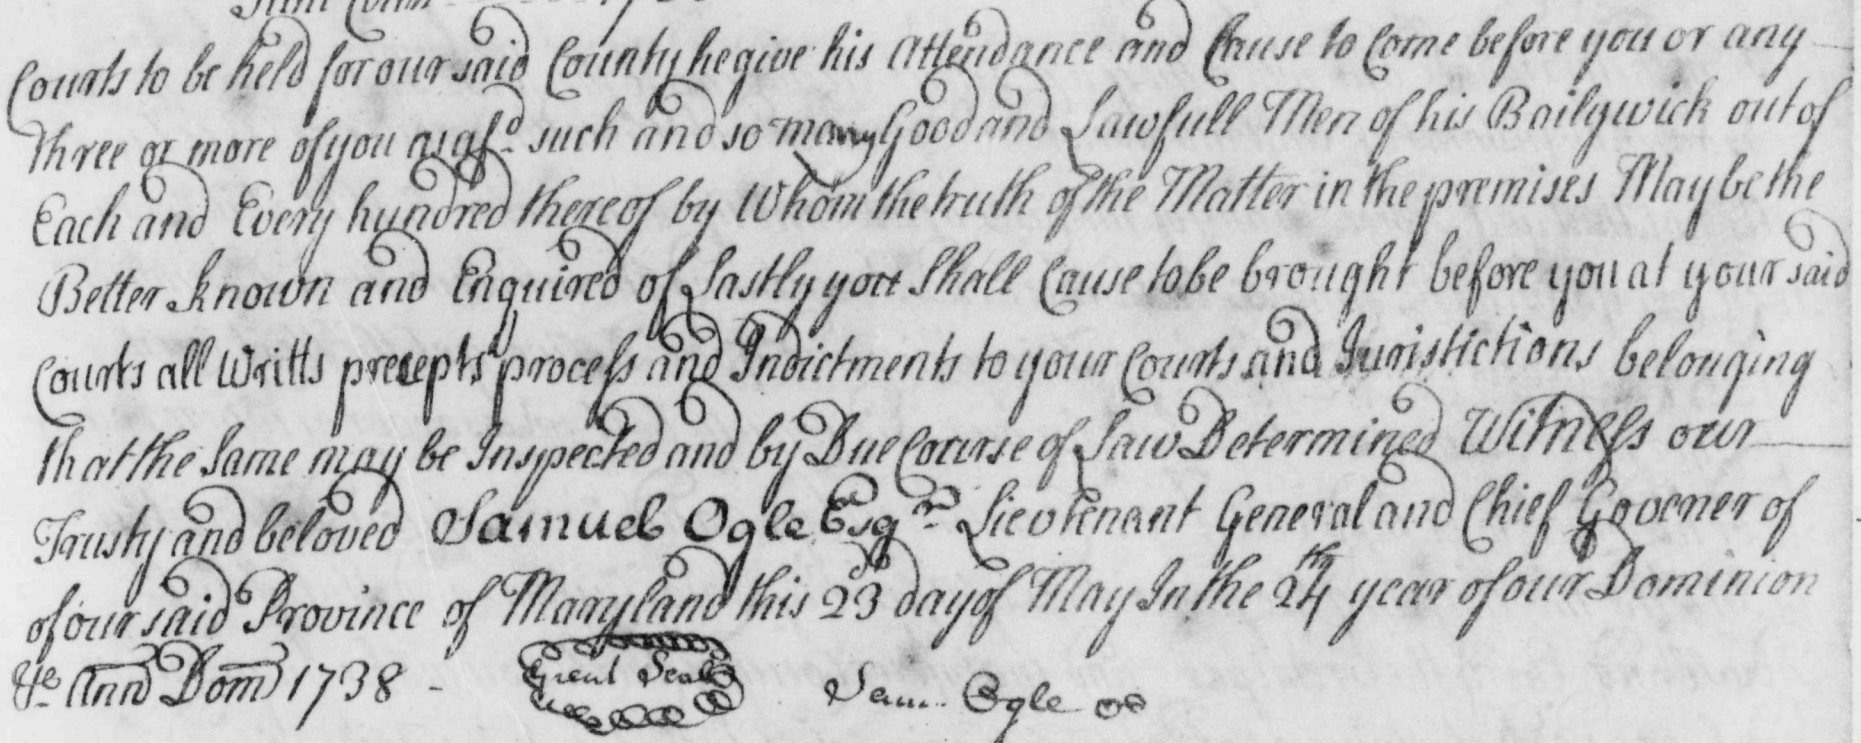 Courts to be held for our said County he give his Attendance and Cause to Come before you or any
three or more of you as afd. such and so many Good and Lawfull Men of his Bailywick out of
Each and Every hundred thereof by Whom the truth of the Matter in the premises May be the
Better known and Enquired of Lastly you Shall Cause to be brought before you at your said
Courts all Writts precepts process and Indictments to your Courts and Juristictions belonging
that the Same may be Inspected and by Due Course of Law Determined Witness our
Trusty and beloved Samuel Ogle Esqr. Lieutenant General and Chief Govener of
of our said Province of Maryland this 23d day of May In the 24th year of our Dominion
&c Ann Dom 1738 - Great Seal Sam. Ogle